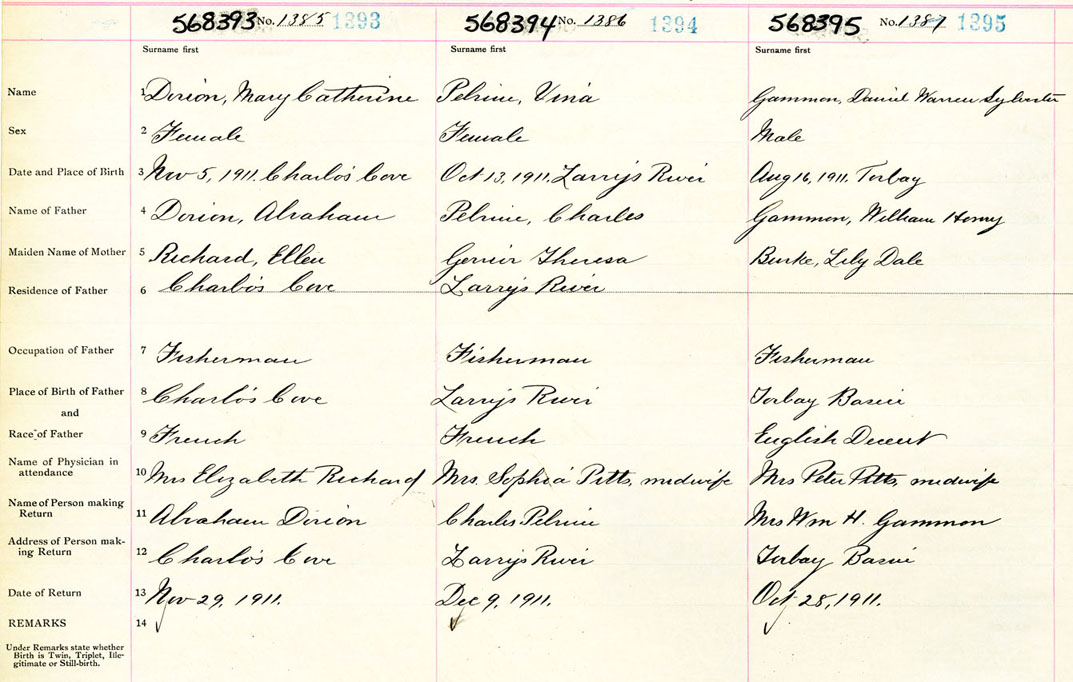 568393 No. 1385 1393 568394 No. 1386 1394 568395 No. 1387 1395
Surname first Surname first Surname first
Name 1 Dorion, Mary Catherine Pelrine, Vina Gammon, Daniel Warren Sylvester
Sex 2 Female Female Male
Date and Place of Birth 3 Nov 5, 1911. Charlo's Cove Oct 13, 1911. Larrys River Aug 16, 1911. Torbay
Name of Father 4 Dorion, Abraham Pelrine, Charles Gammon, William Henry
Maiden Name of Mother 5 Richard, Ellen Theresa Burke, Lily Dale
Residence of Father 6 Charlo's Cove Larrys River
Occupation of Father 7 Fisherman Fisherman Fisherman
Place of Birth of Father 8 Charlo's Cove Larrys River Torbay Basin
and
Race of Father 9 French French English Decent
Name of Physician in
attendance 10 Mrs Elizabeth Richard Mrs. Sophia Pitts, midwife Mrs Peter Pitts, midwife
Name of Person making
Return 11 Abraham Dorion Charles Pelrine Mrs Wm H. Gammon
Address of Person mak-
ing Return 12 Charlo's Cove Larrys River Torbay Basin
Date of Return 13 Nov 29, 1911. Dec 9, 1911. Oct 28, 1911.
REMARKS 14
Under Remarks state whether
Birth is Twin, Triplet, Ille-
gitimate or Still-birth.